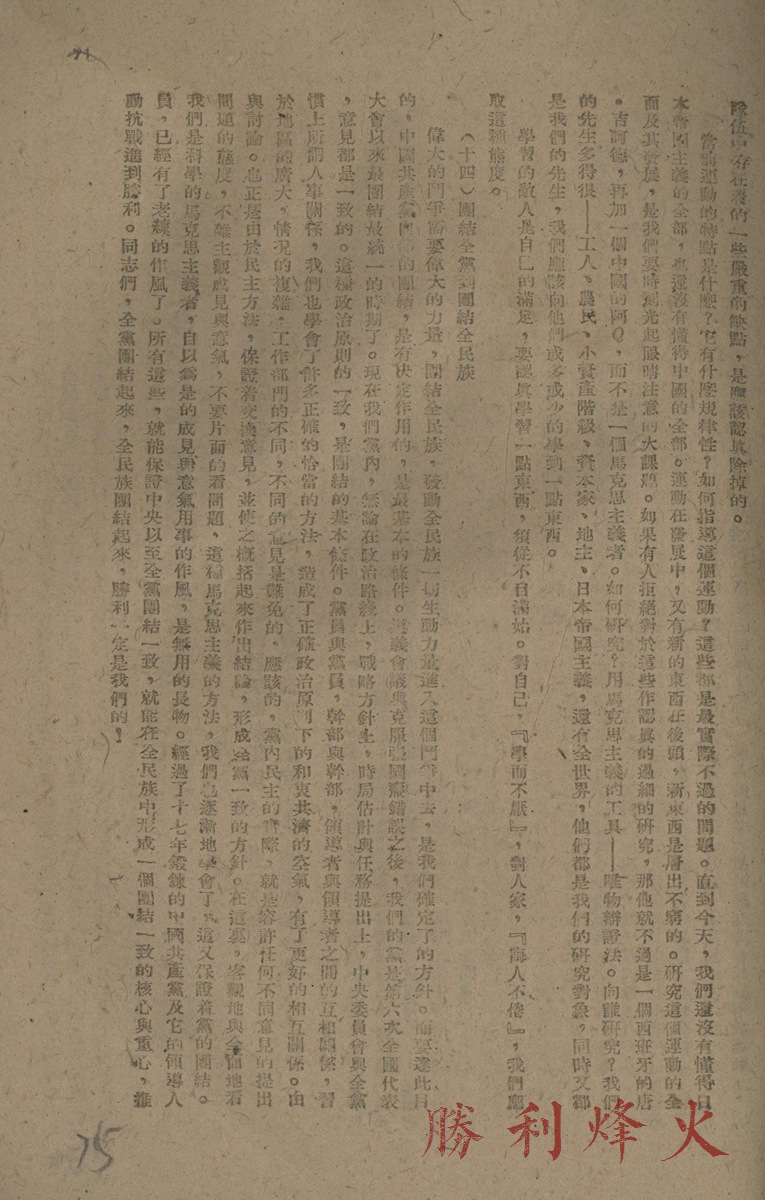 隊伍中存在着的一些嚴重的缺點，是應該認眞除掉的。
當前運動的特點是什麽？它有什麽規律性？如何指導這個運動？這些都是最實際不過的問題。直到今天，我們還沒有懂得日
本帝國主義的全部，也還沒有懂得中國的全部。運動在發展中，又有新的東西在後頭，新東西是層出不窮的。研究這個運動的全
面及其發展，是我們要時刻光起眼睛注意的大課題。如果有人拒絕對於這些作認眞的過細的研究，那他就不過是一個西班牙的唐
。吉訶德，再加一個中國的阿Q，而不是一個馬克思主義者。如何研究？用馬克思主義的工具——唯物辯證法。向誰研究？我們
的先生多得很——工人、農民、小資產階級、資本家、地主、日本帝國主義，還有全世界，他們都是我們的研究對象，同時又都
是我們的先生，我們應該向他們或多或少的學到一點東西。
學習的敵人是自己的滿足，要認眞學習一點東西，須從不自滿始。對自己，『學而不厭』，對人家，『誨人不倦』，我們應
取這種態度。
（十四）團結全黨到團結全民族
偉大的鬥爭需要偉大的力量，團結全民族，發動全民族一切生動力量進入這個鬥爭中去，是我們確定了的方針。而要達此目
的，中國共產黨內部的團結，是有決定作用的，是最基本的條件。遵義會議與克服張國燾錯誤之後，我們的黨是第六次全國代表
大會以來最團結最統一的時期了。現在我們黨內，無論在政治路綫上，戰略方針上，時局估計與任務提出上，中央委員會與全黨
，意見都是一致的。這種政治原則的一致，是團結的基本條件。黨員與黨員，幹部與幹部，領導者與領導者之間的互相關係，習
慣上所謂人事關係，我們也學會了許多正確的恰當的方法，造成了正確政治原則下的和衷共濟的空氣，有了更好的相互關係。由
於地區的廣大，情况的複雜，工作部門的不同，不同的意見是難免的，應該的，黨內民主的實際，就是容許任何不同意見的提出
與討論。也正是由於民主方法，保證着交換意見，並使之概括起來作出結論，形成全黨一致的方針。在這裏，客觀地與全面地看
問題的態度，不雜主觀成見與意氣，不要片面的看問題，這種馬克思主義的方法，我們也逐漸地學會了。這又保證着黨的團結。
我們是科學的馬克思主義者，自以爲是的成見與意氣用事的作風，是無用的長物。經過了十七年鍛鍊的中國共產黨及它的領導人
員，已經有了老練的作風了。所有這些，就能保證中央以至全黨團結一致，就能在全民族中形成一個團結一致的核心與重心，推
動抗戰進到勝利。同志們，全黨團結起來，全民族團結起來，勝利一定是我們的！
75
勝利烽火